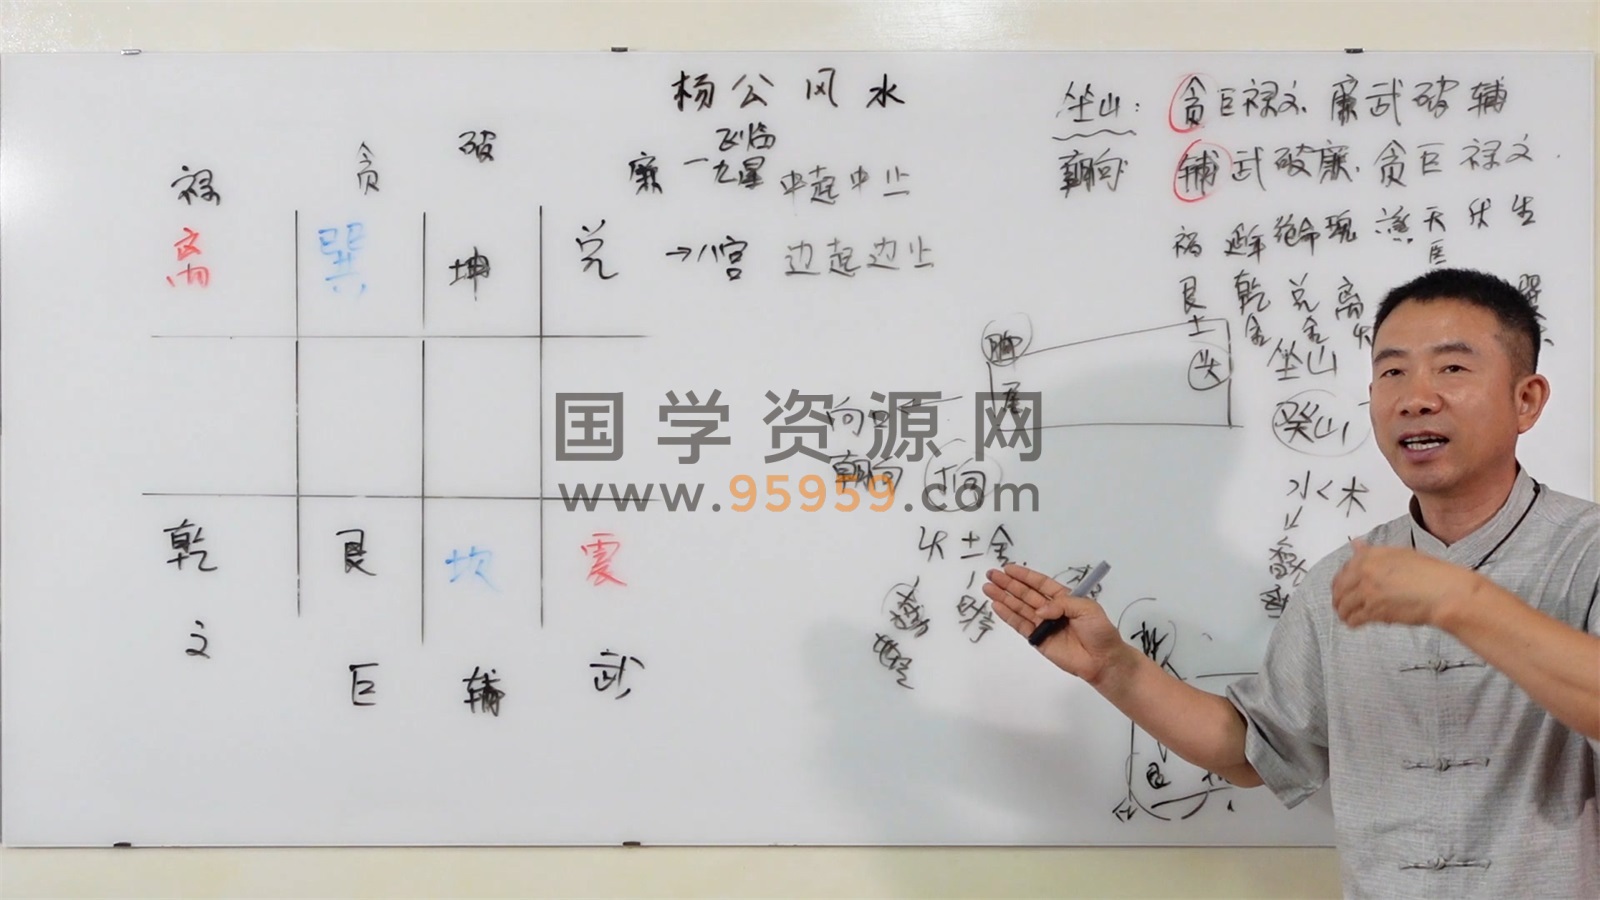 杨公风水
飞临
一九星 中起中止
→八宫 边起边止
禄 贪 破 廉
离 巽 坤 兑
乾 艮 坎 震
文 巨 辅 武
坐山: 贪巨禄文 廉武破辅
朝向 辅武破廉.贪巨禄文.
祸 延年 绝命 天医 伏 生
艮 乾 兑 离
土 金 金 火
坐山
脚 头
尾
癸山
向口
朝向
水<木
火土金
国学资源网
www.95959.com